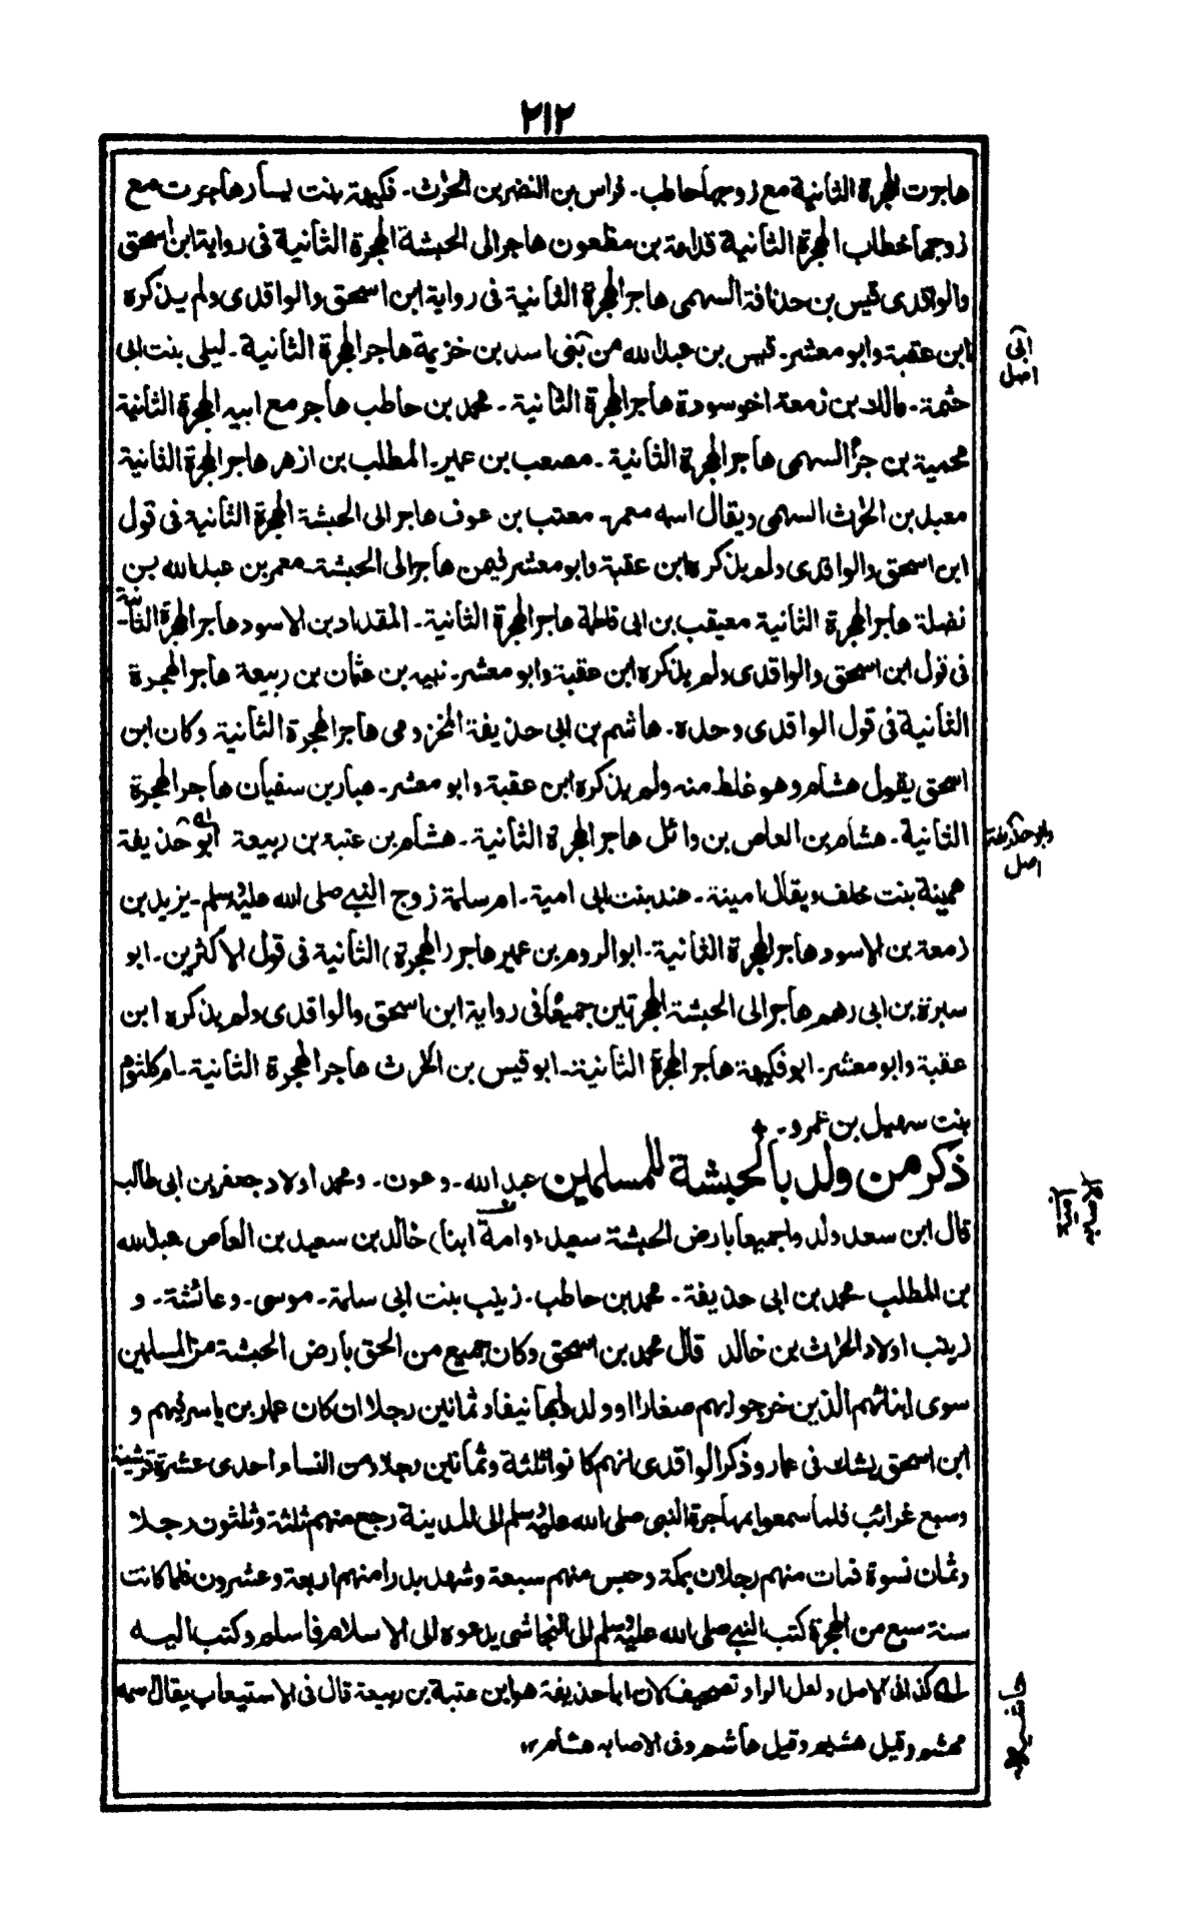 ٢١٢
هاجرت الهجرة الثانية مع زوجها حاطب ـ فراس بن النضر بن الحرث ـ فكيهة بنت يسار هاجرت مع
زوجها خطاب الهجرة الثانية قدامة بن مظعون هاجر الى الحبشة الهجرة الثانية فى رواية ابن اسحق
والواقدى قيس بن حذافة السهمى هاجر الهجرة الثانية فى رواية ابن اسحق والواقدى ولم يذكره
ابن عقبة وابو معشر ـ قيس بن عبد الله من بنى اسد بن خزيمة هاجر الهجرة الثانية ـ ليلى بنت ابى
ابى
اصل
حثمة ـ مالك بن زمعة اخو سودة هاجر الهجرة الثانية ـ محمد بن حاطب هاجر مع ابيه الهجرة الثانية
محمية بن جزأ السهمى هاجر الهجرة الثانية ـ مصعب بن عمير ـ المطلب بن ازهر هاجر الهجرة الثانية
معبد بن الحرث السهمى ويقال اسمه معمر ـ معتب بن عوف هاجر الى الحبشة الهجرة الثانية فى قول
ابن اسحق والواقدى ولم يذكره ابن عقبة وابو معشر فيمن هاجر الى الحبشة ـ معمر بن عبد الله بن
نضلة هاجر الهجرة الثانية معيقب بن ابى فاطمة هاجر الهجرة الثانية ـ المقداد بن الاسود هاجر الهجرة الثانية
فى قول ابن اسحق والواقدى ولم يذكره ابن عقبة وابو معشر ـ نبيه بن عثمان بن ربيعة هاجر الهجرة
الثانية فى قول الواقدى وحده ـ هاشم بن ابى حذيفة المخزومى هاجر الهجرة الثانية وكان ابن
اسحق يقول هشام وهو غلط منه ولم يذكره ابن عقبة وابو معشر ـ هبار بن سفيان هاجر الهجرة
الثانية ـ هشام بن العاص بن وائل هاجر الهجرة الثانية ـ هشام بن عتبة بن ربيعة ابو حذيفة
وابو حذيفة
اصل
همينة بنت خلف ويقال امينة ـ هند بنت ابى امية ـ ام سلمة زوج النبى صلى الله عليه وسلم ـ يزيد بن
زمعة بن الاسود هاجر الهجرة الثانية ـ ابو الروم بن عمير هاجر (الهجرة) الثانية فى قول الاكثرين ـ ابو
سبرة بن ابى رهم هاجر الى الحبشة الهجرتين جميعًا فى رواية ابن اسحق والواقدى ولم يذكره ابن
عقبة وابو معشر ـ ابو فكيهة هاجر الهجرة الثانية ـ ابو قيس بن الحرث هاجر الهجرة الثانية ـ ام كلثوم
بنت سهيل بن عمرو ـ
ذكر من ولد بالحبشة للمسلمين عبد الله ـ وعون ـ ومحمد اولاد جعفر بن ابى طالب
قال ابن سعد ولدوا جميعا بارض الحبشة سعيد (وامة ابنا) خالد بن سعيد بن العاص عبد الله
بن المطلب محمد بن ابى حذيفة ـ محمد بن حاطب ـ زينب بنت ابى سلمة ـ موسى ـ وعائشة ـ و
زينب اولاد الحرث بن خالد قال محمد بن اسحق وكان جميع من الحق بارض الحبشة من المسلمين
سوى ابنائهم الذين خرجوا بهم صغارا او ولدوا بها نيفا وثمانين رجلا ان كان عمار بن ياسر فيهم و
ابن اسحق يشك فى عمار وذكر الواقدى انهم كانوا ثلثة وثمانين رجلا ومن النساء احدى عشرة قرشية
وسبع غرائب فلما سمعوا بمهاجرة النبى صلى الله عليه وسلم الى المدينة رجع منهم ثلثة وثلثون رجلا
وثمان نسوة فمات منهم رجلان بمكة وحبس منهم سبعة وشهد بدرا منهم اربعة وعشرون فلما كانت
سنة سبع من الهجرة كتب النبى صلى الله عليه وسلم الى النجاشى يدعوه الى الاسلام فاسلم وكتب اليه
له كذا فى الاصل ولعل الواو تصحيف لان ابا حذيفة هو ابن عتبة بن ربيعة قال فى الاستيعاب يقال اسمه
مهشم وقيل هشيم وقيل هاشم وفى الاصابه هشام ١٢